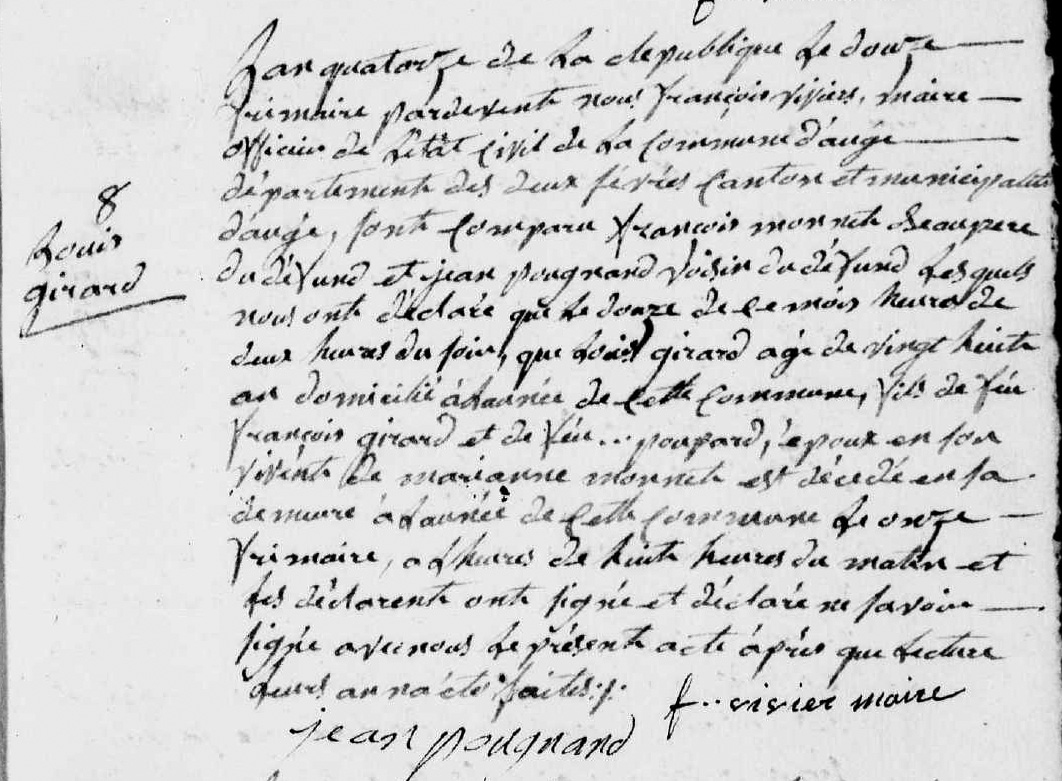 8
Louis
girard
Lan quatorze de La Republique Le douze
frimaire pardevent nous françois viviers, maire
officier de Letat Civil de La Commune d'augé
département des deux sévres Canton et municipalité
d'augé, sont Comparu françois monnet Beaupere
du défund et jean pougnand voisin du défund Lesquels
nous ont déclaré que Le douze de Ce mois heure de
deux heures du soir, que Louis girard agé de vingt huite
an domicilié à de Cette Commune, fils de féu
françois girard et de féu... poupard, époux en son
vivént de marianne monnet est décédé en sa
demeure à de Cette Commune Le onze
frimaire, a Lheures de huite heures du matin et
Les déclarent ont signé et déclaré ne savoir
signée avec nous Le présent acte áprés que Lecture
Leurs an na été faites ./.
f.. vivier maire
jean pougnand